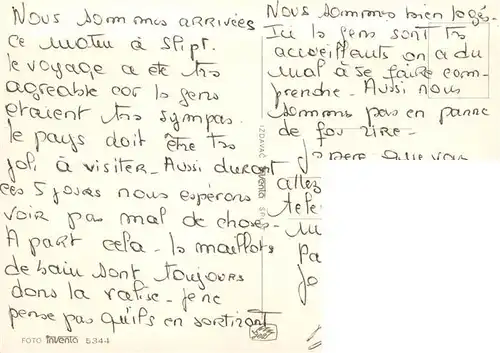 Nous sommes arrivées
ce matin à Split.
le voyage a été trs
agreable car ls gens
etaient trs sympas.
le pays doit être trs
joli à visiter. Aussi durant
ces 5 jours nous espérons
voir pas mal de choses.
A part cela. ls maillots
de bain sont toujours
dans la valise. Je ne
pense pas qu'ils en sortiront
Nous sommes bien logés.
Ici ls gens sont trs
accueillants on a du
mal à se faire com-
prendre. Aussi nous
sommes pas en panne
de fou rire.
J'espère que vous
allez
tele
Pa
Jo
IZDAVAČ inventa SP
FOTO inventa 5344